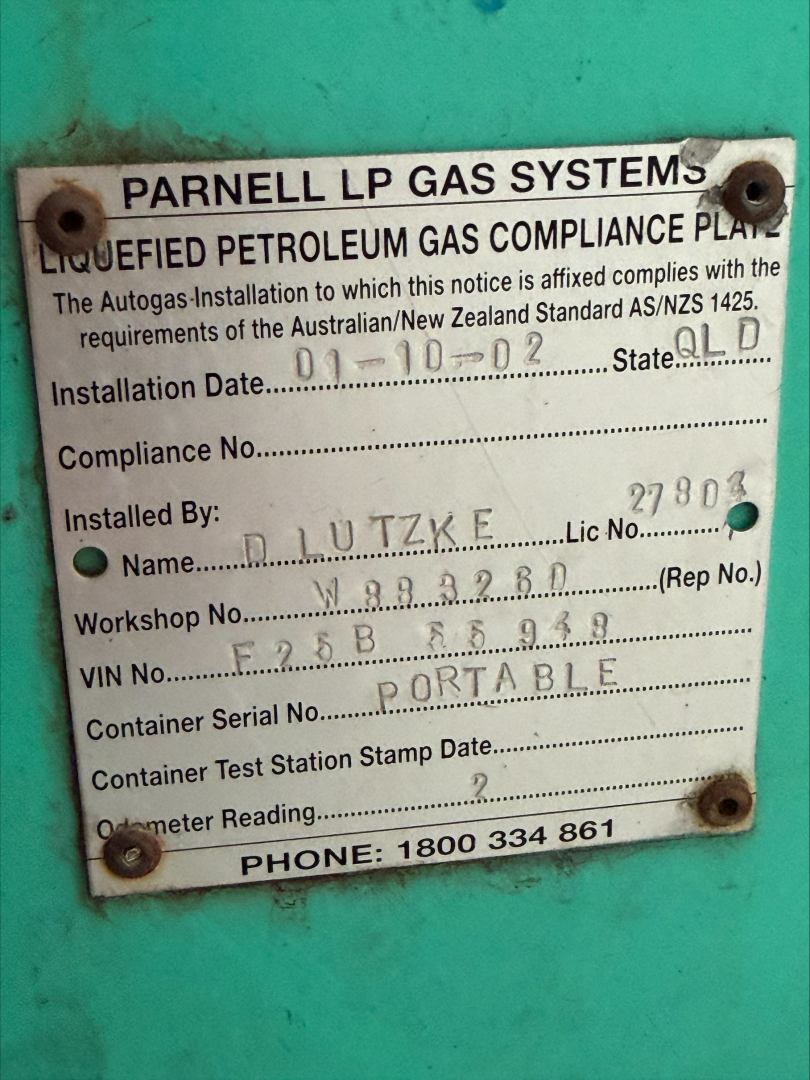 PARNELL LP GAS SYSTEMS
LIQUEFIED PETROLEUM GAS COMPLIANCE PLATE
The Autogas Installation to which this notice is affixed complies with the
requirements of the Australian/New Zealand Standard AS/NZS 1425.
Installation Date 01-10-02 State QLD
Compliance No.
Installed By:
Name D LUTZKE Lic No.
Workshop No. (Rep No.)
VIN No.
Container Serial No. PORTABLE
Container Test Station Stamp Date
Odometer Reading 2
PHONE: 1800 334 861